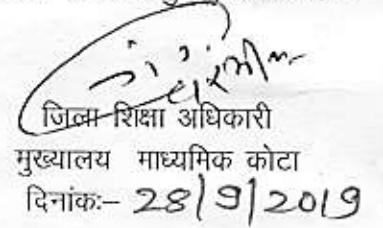 जिला शिक्षा अधिकारी
मुख्यालय माध्यमिक कोटा
दिनांकः– 28/9/2019